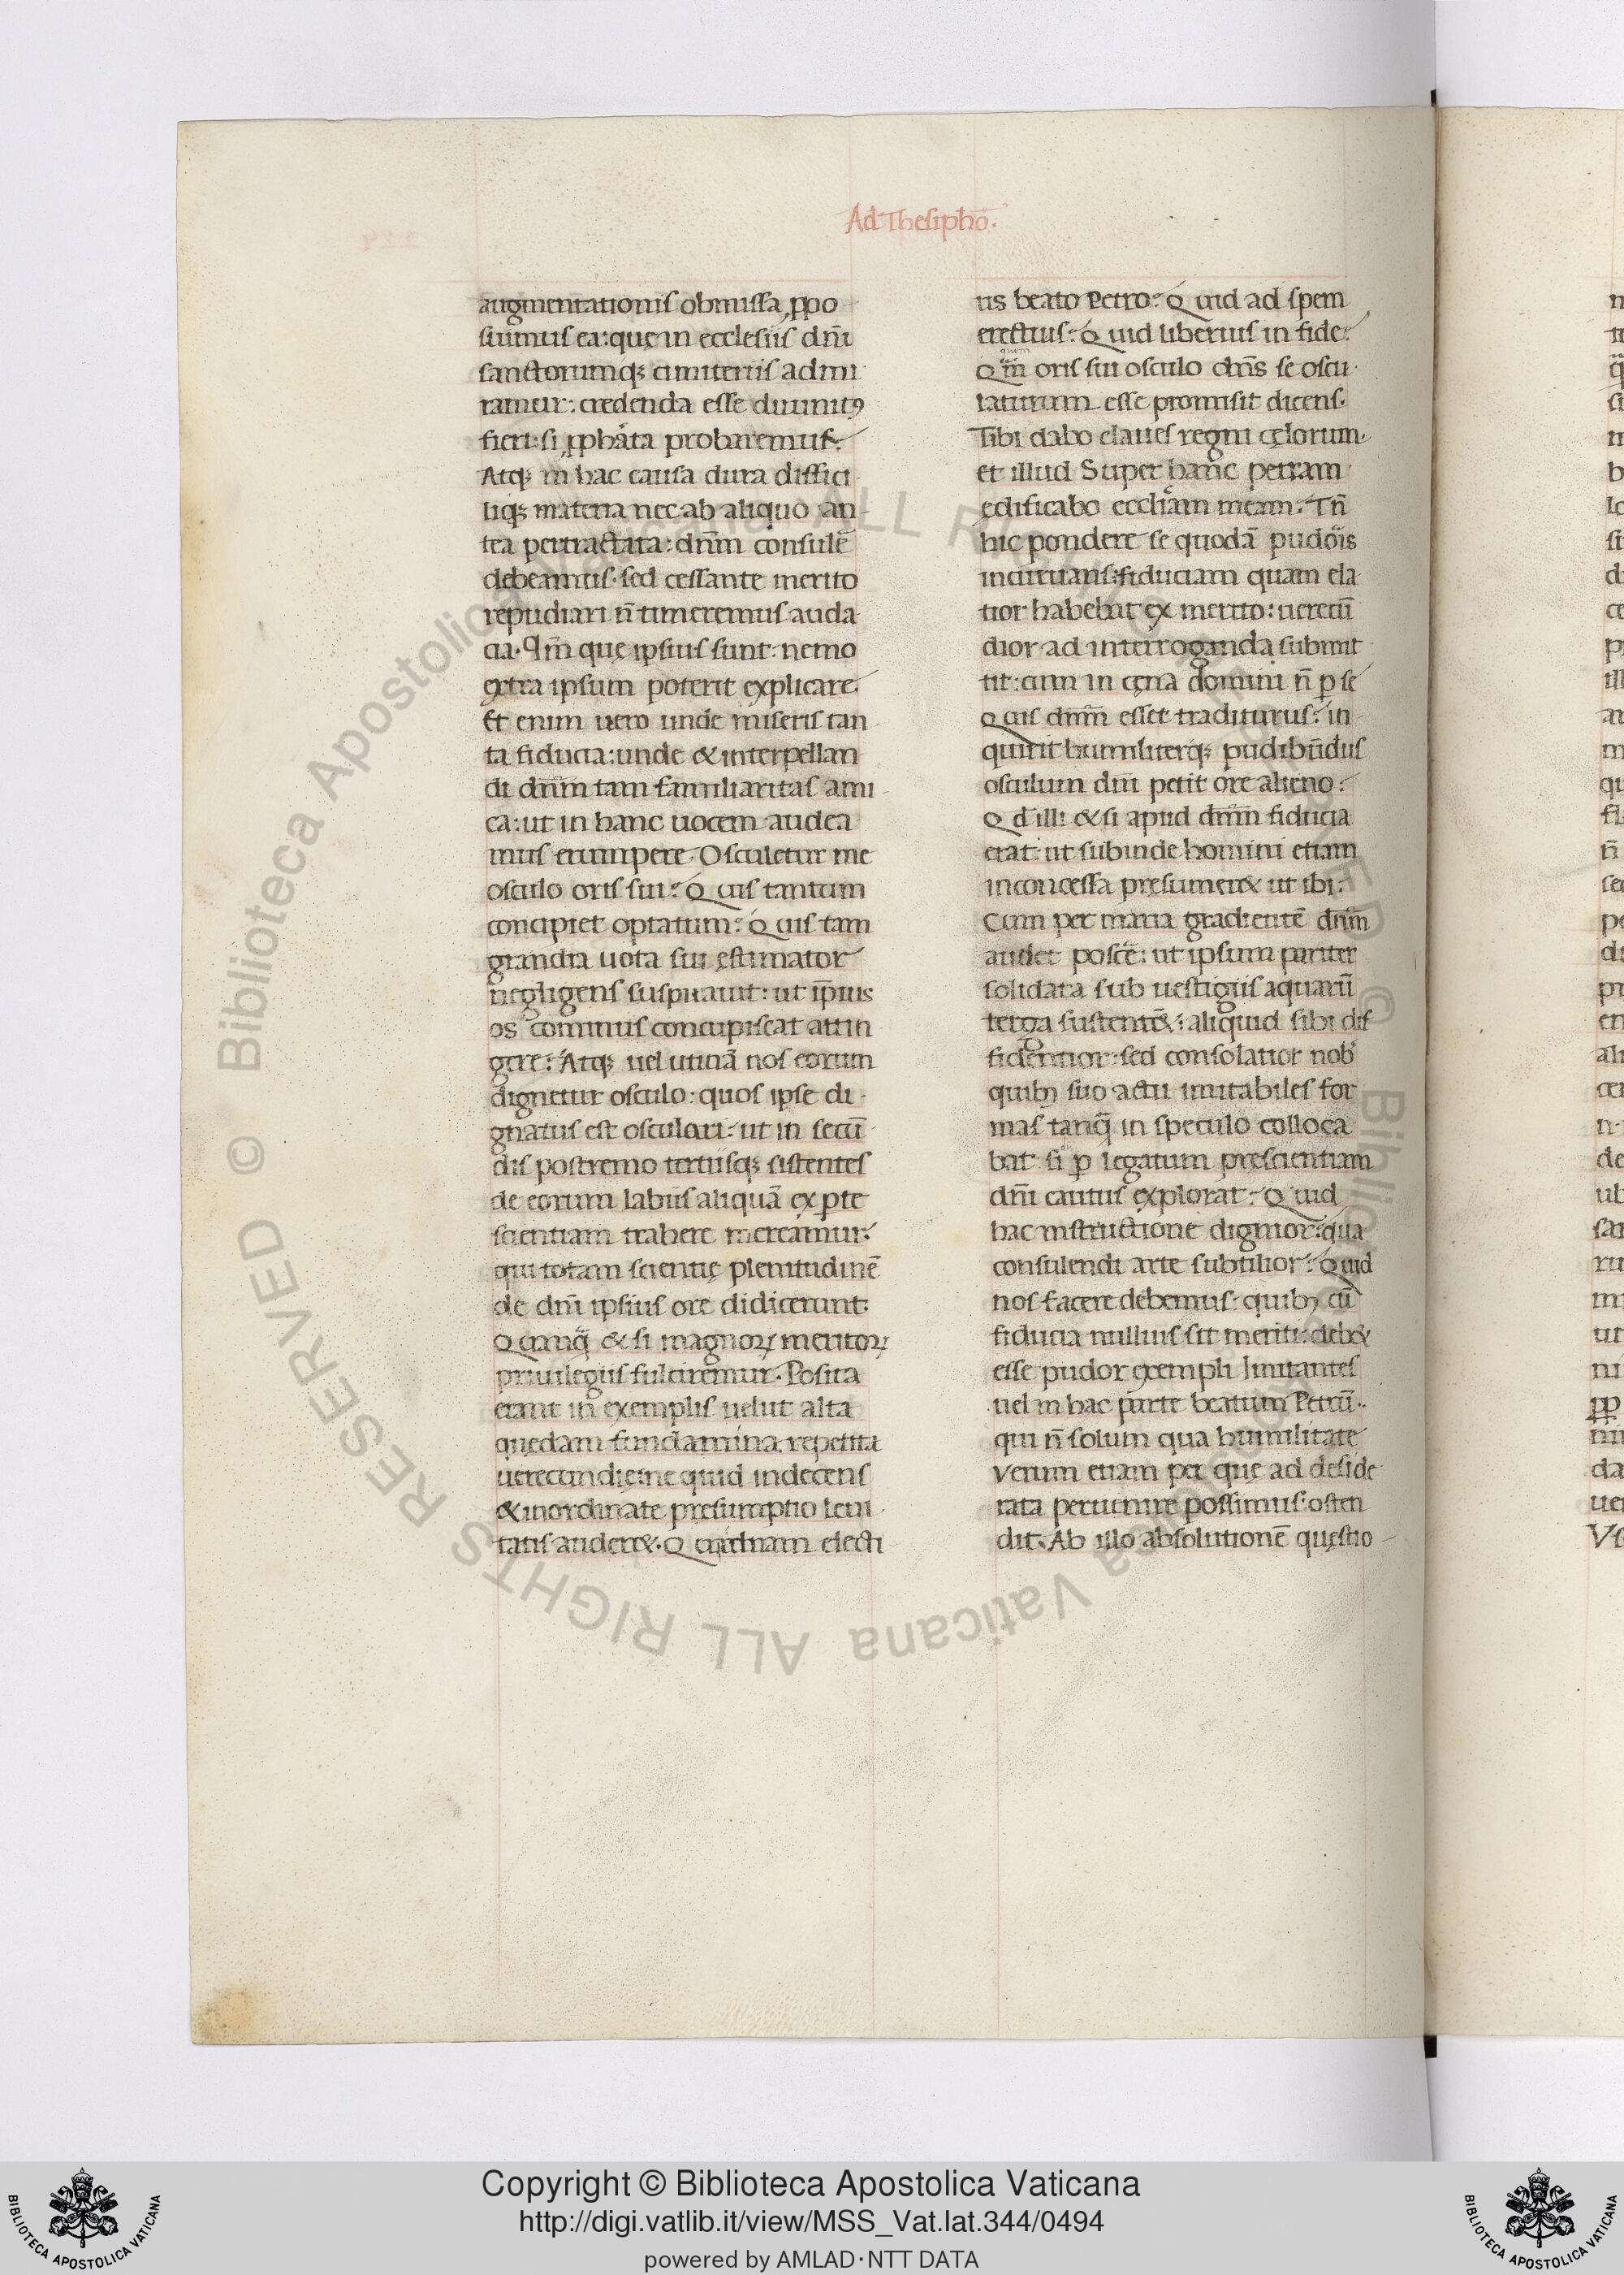 Ad Thesiphō.
augmentationis obmissa, ꝓpo
suimus ea: quę in ecclesiis dn̄i
sanctorumq; cimiteriis admi
ramur: credenda esse diuinitꝰ
fieri: si ꝓphāta probaremus.
Atq; in hac causa dura diffici
liq; materia nec ab aliquo an
tea pertractata: dn̄m consulē
debeamus. sed cessante merito
repudiari n̄ timeremus auda
cia. Qm̄ quę ipsius sunt: nemo
extra ipsum poterit explicare.
Et enim uero unde miseris tan
ta fiducia: unde & interpellan
di dn̄m tam familiaritas ami
ca: ut in hanc uocem audea
mus erumpere. Osculetur me
osculo oris sui? Quis tantum
concipiet optatum? Quis tam
grandia uota sui ęstimator
negligens suspirauit: ut ip̄ius
os cominus concupiscat attin
gere? Atq; uel utinā nos eorum
dignetur osculo: quos ipse di
gnatus est osculari: ut in secū
dis postremo tertiisq; sistentes
de eorum labiis aliquā ex ꝑte
scientiam trahere mereamur:
qui totam scientię plenitudinē
de dn̄i ipsius ore didicerunt.
Quanq̄ & si magnoꝝ meritoꝝ
priuilegiis fulciremur. Posita
erant in exemplis uelut alta
quędam fundamina, repetita
uerecundię: ne quid indecens
& inordinate presumptio leui
tatis auderet. Quidnam electi
us beato Petro? Quid ad spem
erectius? Quid liberius in fide?
quem
Qm̄ oris sui osculo dn̄s se oscu
laturum esse promisit dicens.
Tibi dabo claues regni cęlorum.
et illud Super hanc petram
edificabo eccliam meam. Tn̄
hic pondere se quodā pudoris
incuruans: fiduciam quam ela
tior habebat ex merito: uerecū
dior ad interroganda submit
tit: cum in cęna domini n̄ ꝑ se
Quis dn̄m esset traditurus: in
quirit humiliterq; pudibūdus
osculum dn̄i petit ore alieno?
Qd illi & si apud dn̄m fiducia
erat: ut subinde homini etiam
inconcessa presumer& ut ibi:
Cum per maria gradientē dn̄m
audet poscē: ut ipsum pariter
solidata sub uestigiis aquarū
terga sustent&: aliquid sibi dif
fidentior: sed consolatior nob̄
quibꝫ suo actu imitabiles for
mas tanq̄ in speculo colloca
bat: si ꝑ legatum prescientiam
dn̄i cautus explorat? Quid
hac instructione dignior: qua
consulendi arte subtilior? Quid
nos facere debemus: quibꝫ cū
fiducia nullius sit meriti: deb&
esse pudor exempli Imitantes
uel in hac parte beatum Petrū.
qui n̄ solum qua humilitate
Verum etiam per quę ad deside
rata peruenire possimus: osten
dit. Ab illo absolutionē quęstio
Copyright © Biblioteca Apostolica Vaticana
http://digi.vatlib.it/view/MSS_Vat.lat.344/0494
powered by AMLAD·NTT DATA
BIBLIOTECA APOSTOLICA VATICANA
BIBLIOTECA APOSTOLICA VATICANA
© Biblioteca Apostolica Vaticana ALL RIGHTS RESERVED
© Biblioteca Apostolica Vaticana ALL RIGHTS RESERVED